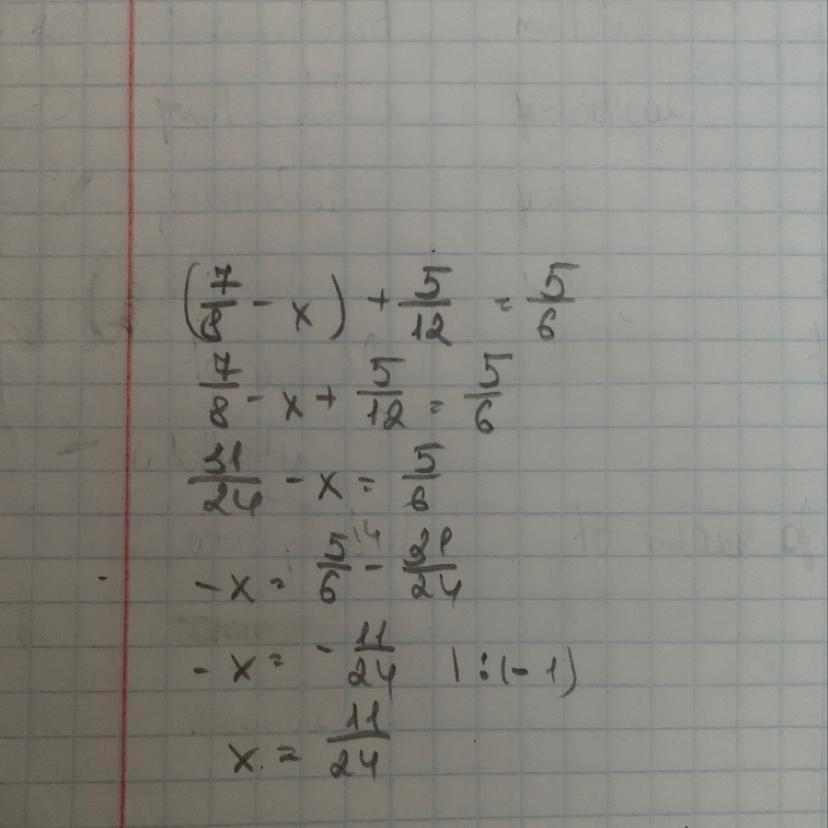 (7/8 - x) + 5/12 = 5/6
7/8 - x + 5/12 = 5/6
31/24 - x = 5/6
- x = 5/6 - 31/24
- x = - 11/24 | : (- 1)
x = 11/24